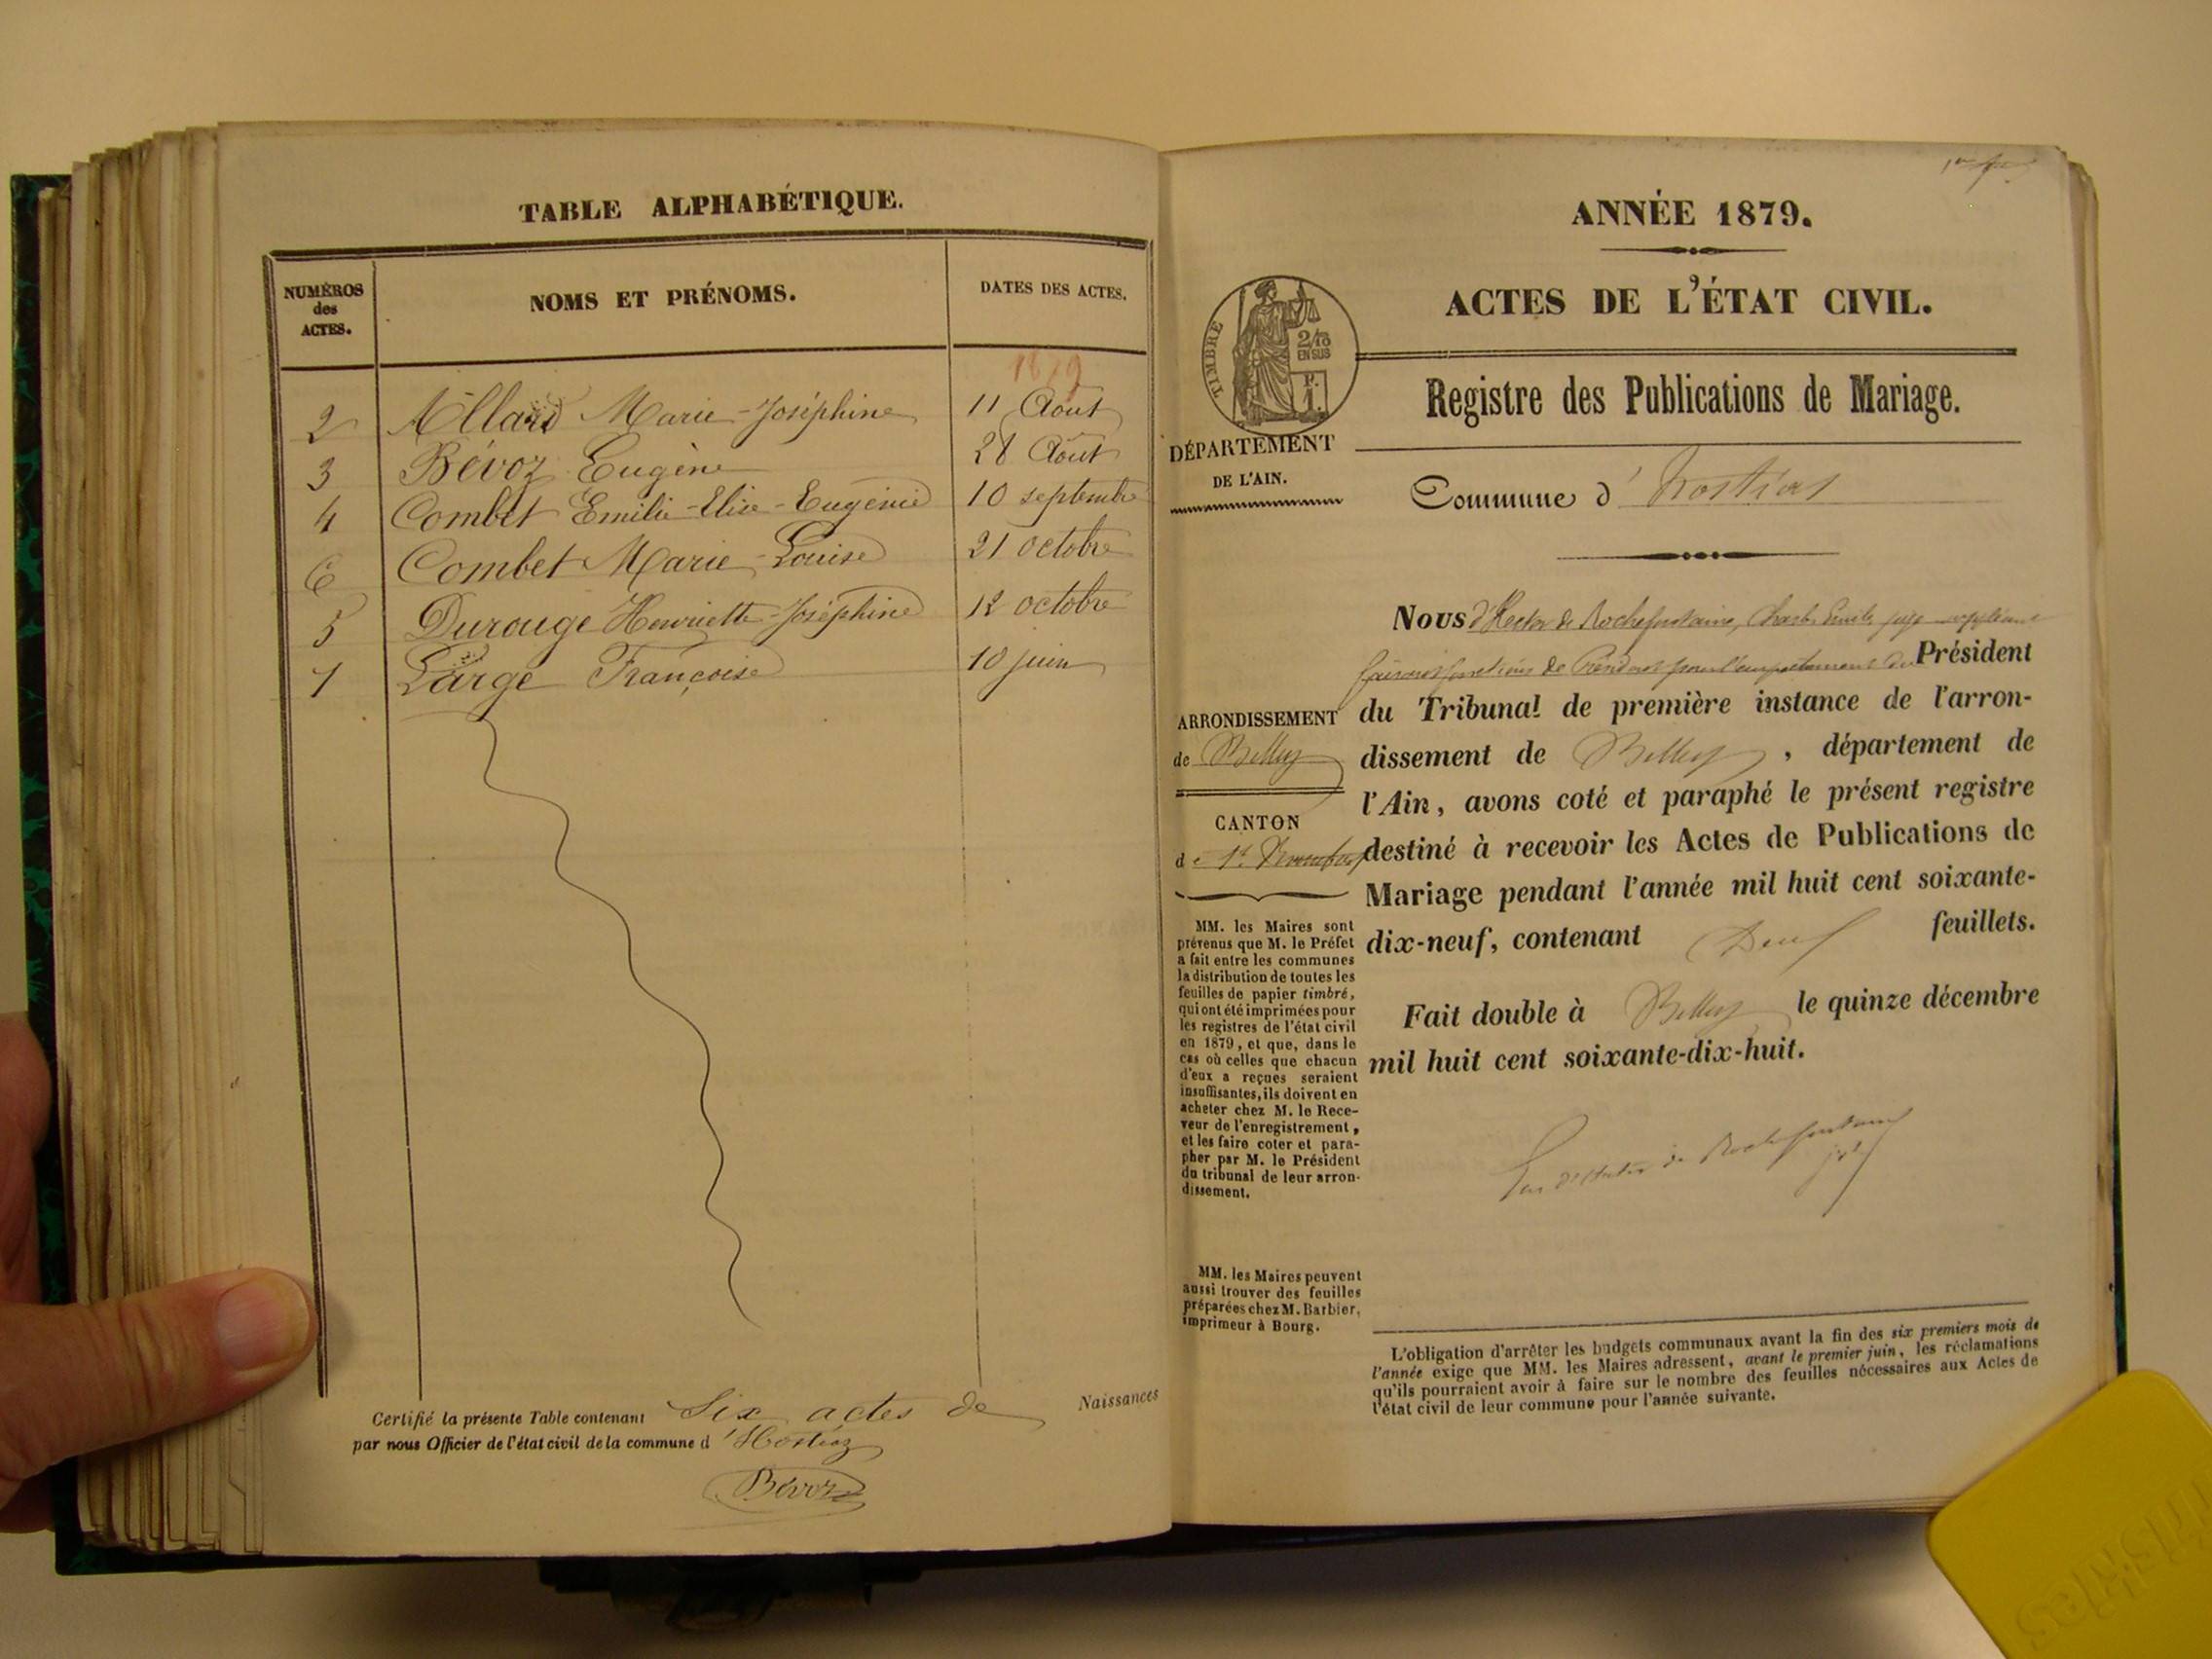 TABLE ALPHABÉTIQUE.
NUMÉROS des ACTES.
NOMS ET PRÉNOMS.
DATES DES ACTES.
1879
2 Allard Marie-Joséphine 11 Août
3 Bévoz Eugène 28 Août
4 Combet Emilie-Elise-Eugénie 10 septembre
6 Combet Marie-Louise 21 octobre
5 Durouge Henriette-Joséphine 12 octobre
1 Large Françoise 10 juin
Certifié la présente Table contenant Six actes de Naissances
par nous Officier de l'état civil de la commune d'Hostiaz
Bévoz
ANNÉE 1879.
ACTES DE L'ÉTAT CIVIL.
TIMBRE
2/10
EN SUS
Registre des Publications de Mariage.
DÉPARTEMENT
DE L'AIN.
Commune d'Hostias
ARRONDISSEMENT
de Belley
CANTON
de St. Rambert
MM. les Maires sont
prévenus que M. le Préfet
a fait entre les communes
la distribution de toutes les
feuilles de papier timbré,
qui ont été imprimées pour
les registres de l'état civil
en 1879, et que, dans le
cas où celles que chacun
d'eux a reçues seraient
insuffisantes, ils doivent en
acheter chez M. le Rece-
veur de l'enregistrement,
et les faire coter et para-
pher par M. le Président
du tribunal de leur arron-
dissement.
MM. les Maires peuvent
aussi trouver des feuilles
préparées chez M. Barbier,
imprimeur à Bourg.
Nous d'Hector de Rochefontaine, Charles Emile juge suppléant
fonctions de Président pour l'empêchement du Président
du Tribunal de première instance de l'arron-
dissement de Belley, département de
l'Ain, avons coté et paraphé le présent registre
destiné à recevoir les Actes de Publications de
Mariage pendant l'année mil huit cent soixante-
dix-neuf, contenant Deux feuillets.
Fait double à Belley le quinze décembre
mil huit cent soixante-dix-huit.
d'Hector de Rochefontaine
L'obligation d'arrêter les budgets communaux avant la fin des six premiers mois de
l'année exige que MM. les Maires adressent, avant le premier juin, les réclamations
qu'ils pourraient avoir à faire sur le nombre des feuilles nécessaires aux Actes de
l'état civil de leur commune pour l'année suivante.